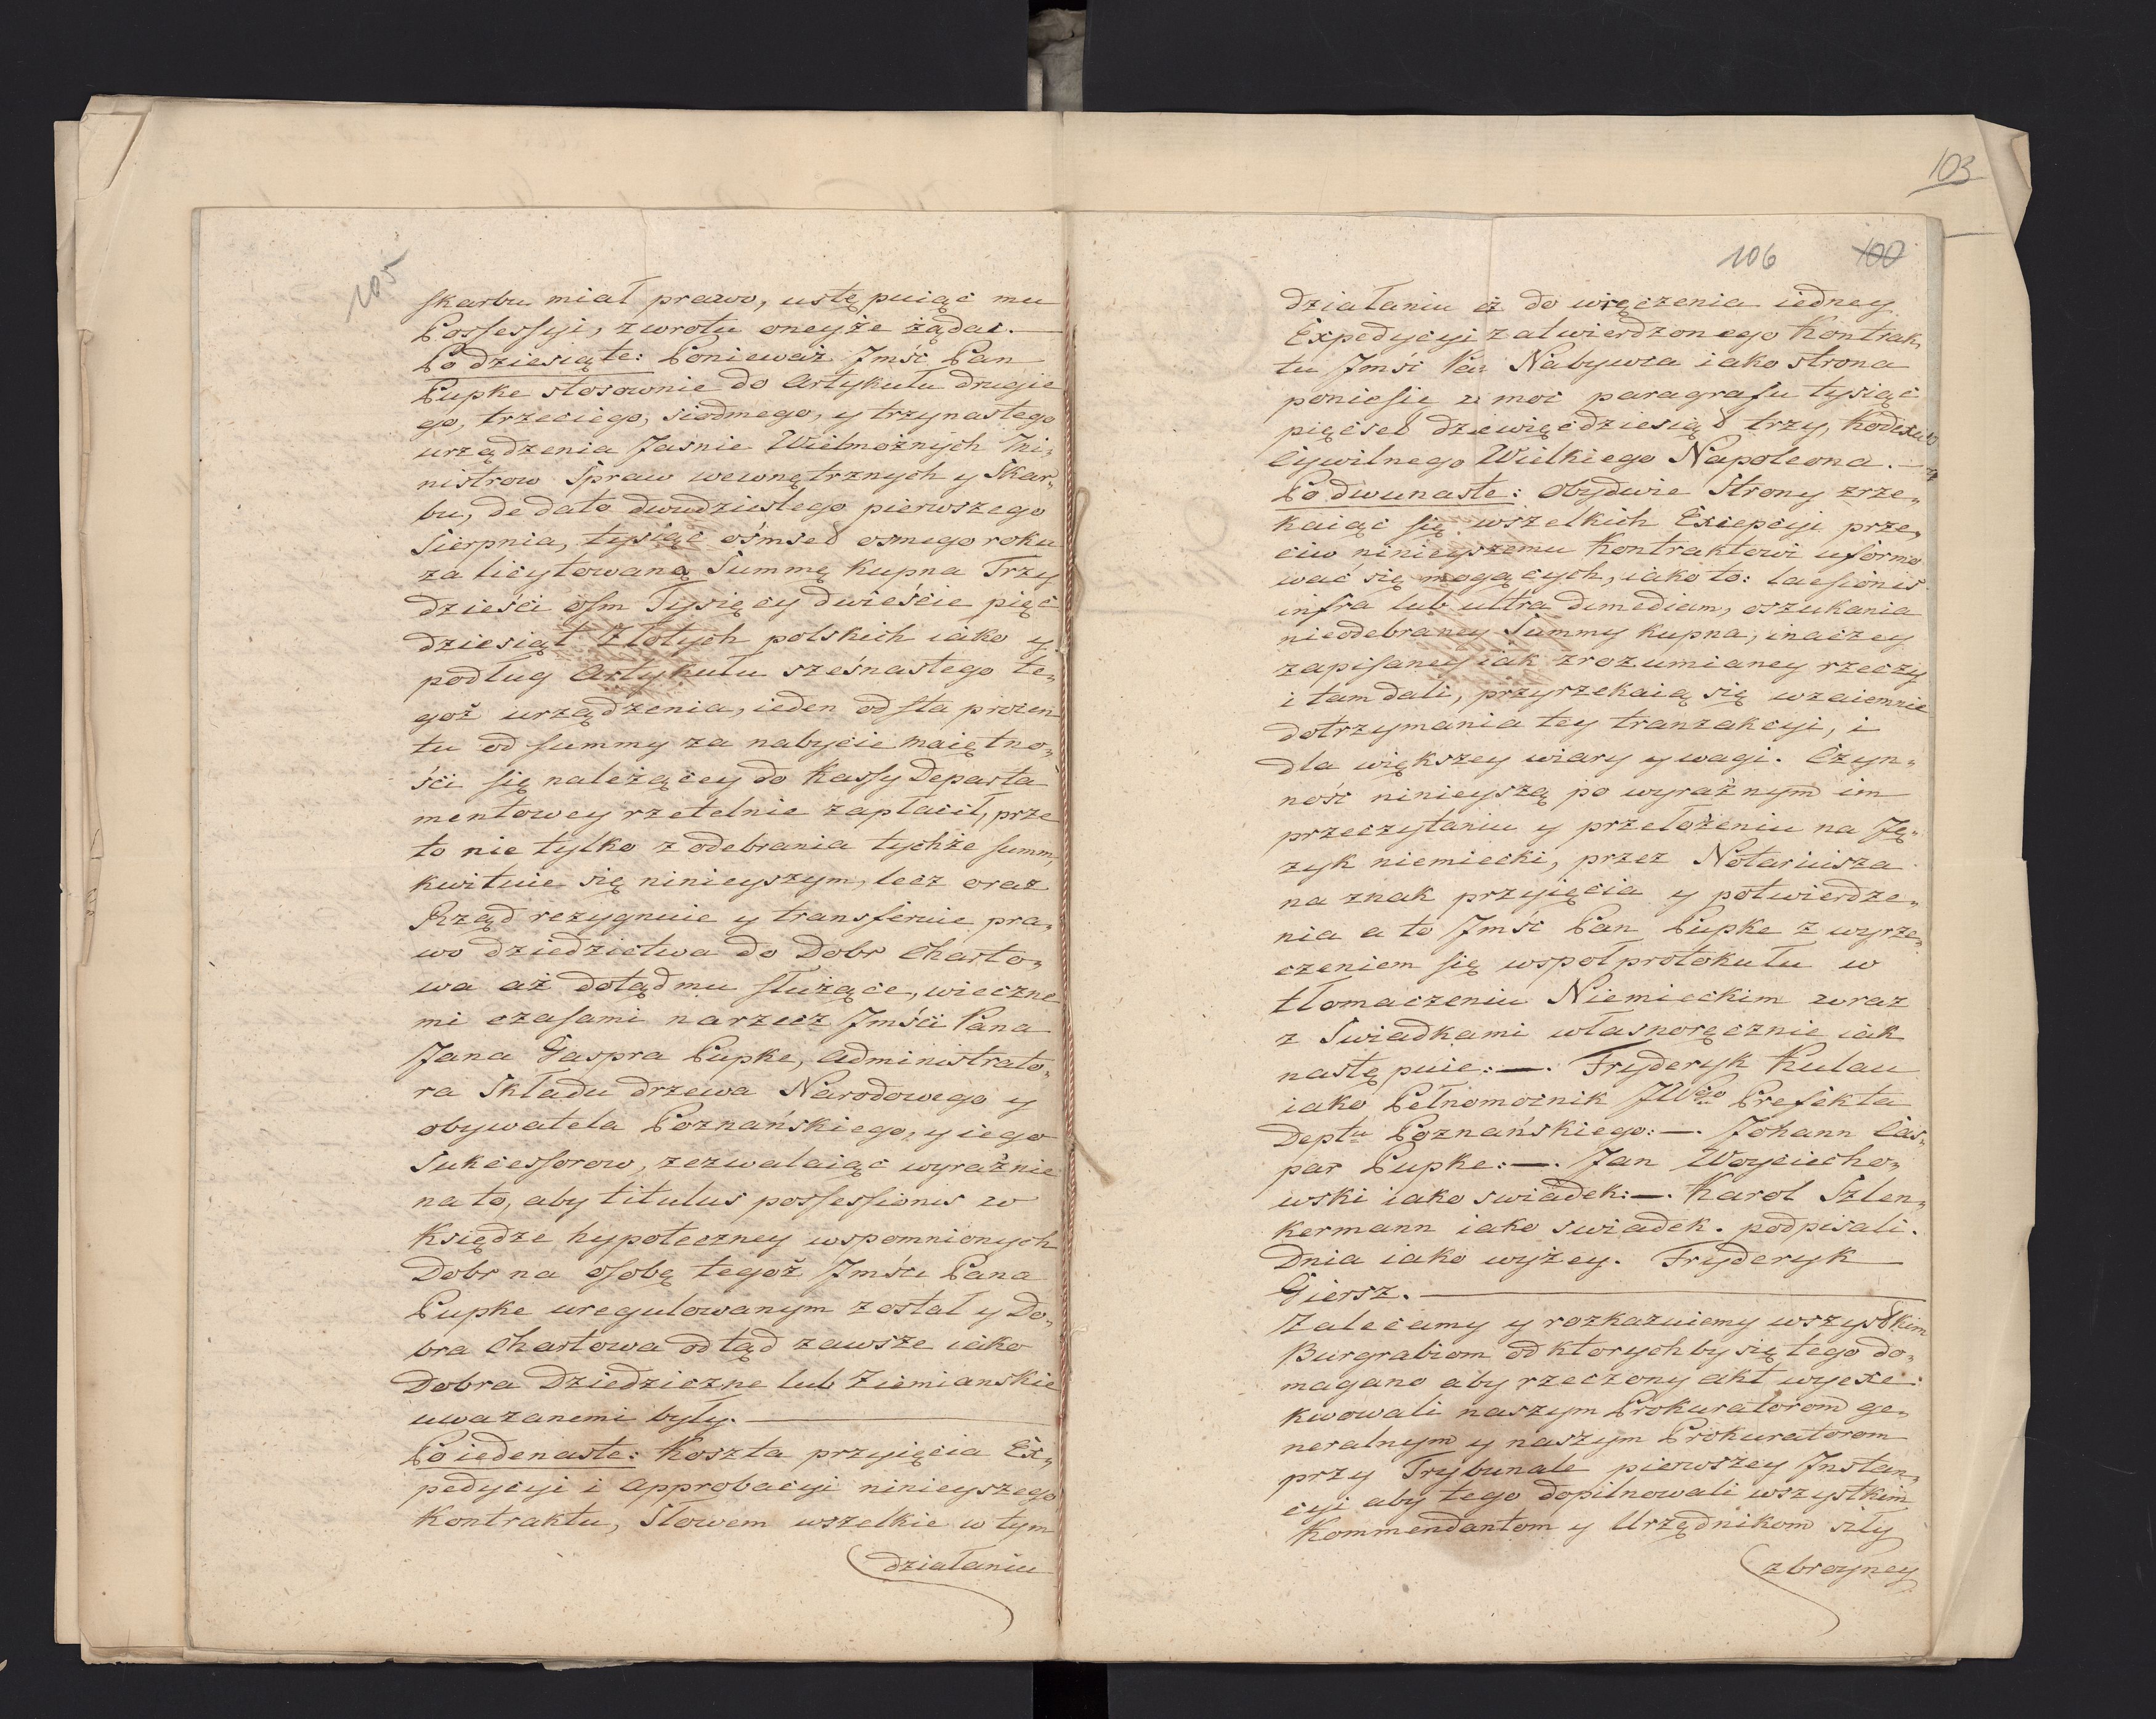 105
skarbu miał prawo, ustępuiąc mu
Possessyi, zwrotu oneyże żądać. —
Po dziesiąte: Ponieważ Jmść Pan
Pupke stosownie do Artykułu drugie
go, trzeciego, siodmego, y trzynastego
urządzenia Jaśnie Wielmożnych Mi„
nistrow Spraw wewnętrznych y Skar„
bu, de dato dwudziestego pierwszego
Sierpnia, tysiąc ośmset osmego roku
za licytowaną Summę kupna Trzy
dzieści osm Tysięcy dwieście pięć
dziesiąt Złotych polskich iako y
podług Artykułu szesnastego te„
goż urządzenia, ieden od sta procen
tu od summy za nabycie maiętno„
ści się należącey do Kassy Departa
mentowey rzetelnie zapłacił, prze
to nie tylko z odebrania tychże summ„
kwituie się ninieyszym, lecz oraz
Rząd rezygnuie y transferuie pra„
wo dziedzictwa do Dobr Charto„
wa aż dotąd mu służące, wieczne
mi czasami na rzecz Jmści Pana
Jana Gaspra Pupke, Administrato„
ra Składu drzewa Narodowego y
obywatela Poznańskiego, y iego
Sukcessorow, zezwalaiąc wyraźnie
na to, aby titulus possessionis w
Księdze hypoteczney wspomnionych
Dobr na osobę tegoż Jmści Pana
Pupke uregulowanym został y Do„
bra Chartowa odtąd zawsze iako
Dobra Dziedziczne lub Ziemianskie
uwazanemi były. —
Po iedenaste: Koszta przyięcia Ex„
pedycyi i approbacyi ninieyszego
Kontraktu, Słowem wszelkie w tym
działaniu
103
106 100
działaniu aż do więczenia iedney
Expedycyi zatwierdzonego Kontrak„
tu Jmści Pan Nabywca iako strona
poniesie w moc paragrafu tysiąc
pięćset dziewięćdziesiąt trzy, Kodexu
Cywilnego Wielkiego Napoleona. —
Po dwunaste: Obydwie Strony zrze„
kaiąc się wszelkich Excepcyi prze„
ciw ninieyszemu Kontraktowi uformo
wać się mogących, iako to: laesionis
infra lub ultra dimediam, oszukania
nieodebraney Summy kupna, inaczey
zapisaney iak zrozumianey rzeczy
i tam dali, przyrzekaią się wzaiemnie
dotrzymania tey tranzakcyi, i
dla większey wiary y wagi. Czyn„
ność ninieyszą po wyraźnym im
przeczytaniu y przełożeniu na Ję„
zyk niemiecki, przez Notariusza
na znak przyięcia y potwierdze„
nia a to Jmść Pan Pupke z wyrze„
czeniem się wspoł protokułu w
tłomaczeniu Niemieckim wraz
z Swiadkami własnoręcznie iak
następuie: —. Fryderyk Kulau
iako Pełnomocnik JWgo Prefekta
Deptu Poznańskiego: —. Johann Cas„
par Pupke: —. Jan Woyciecho„
wski iako swiadek: —. Karol Szlen„
kermann iako swiadek. podpisali.
Dnia iako wyżey. Fryderyk —
Giersz. —
Zalecamy y rozkazuiemy wszystkim
Burgrabiom od ktorychby się tego do„
magano aby rzeczony akt wyexe„
kwowali naszym Prokuratorom ge„
neralnym y naszym Prokuratorom
przy Trybunale pierwszey Instan„
cyi aby tego dopilnowali wszystkim
Kommendantom y Urzędnikom siły
zbroyney